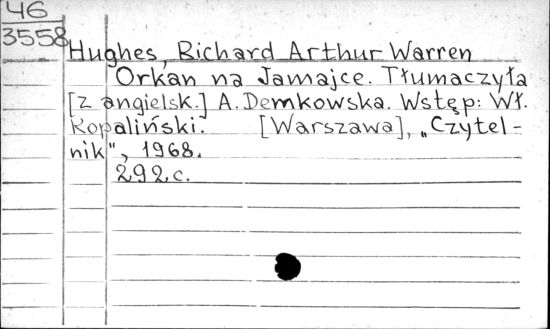 46
3558
Hughes, Richard Arthur Warren
Orkan na Jamajce. Tłumaczyła
[z angielsk.] A. Demkowska. Wstęp: Wł.
Kopaliński. [Warszawa], „Czytel-
nik", 1968.
292 c.